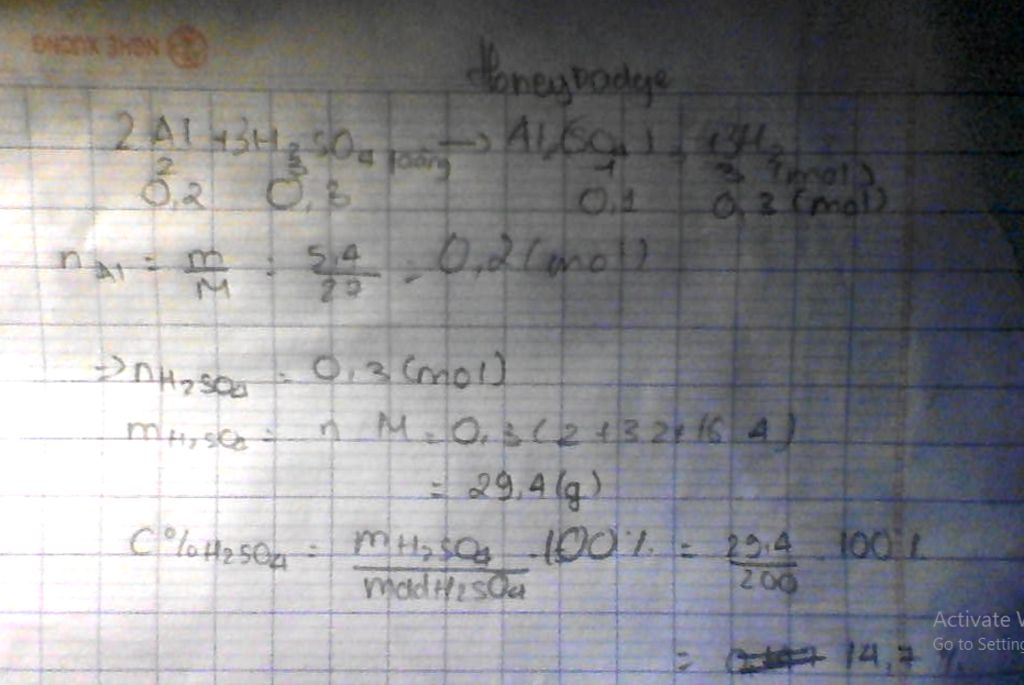 NGHE XUONG
Honeybadge
2Al + 3H2SO4 loãng → Al2(SO4)3 + 3H2
2 3 1 3 (mol)
0,2 0,3 0,1 0,3 (mol)
nAl = m/M = 5,4/27 = 0,2 (mol)
→ nH2SO4 = 0,3 (mol)
mH2SO4 = n M = 0,3 (2 + 32 + 16 4)
= 29,4 (g)
C%H2SO4 = mH2SO4/mddH2SO4 . 100% = 29,4/200 100%
= 14,7 %
Activate
Go to Setting